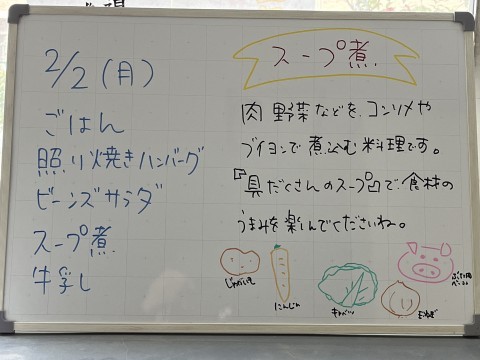 2/2(月)
ごはん
照り焼きハンバーグ
ビーンズサラダ
スープ煮
牛乳
スープ煮
肉 野菜などを、コンソメや
ブイヨンで煮込む料理です。
『具だくさんのスープ』で、食材の
うまみを楽しんでくださいね。
じゃがいも
にんじん
キャベツ
玉ねぎ
ベーコン